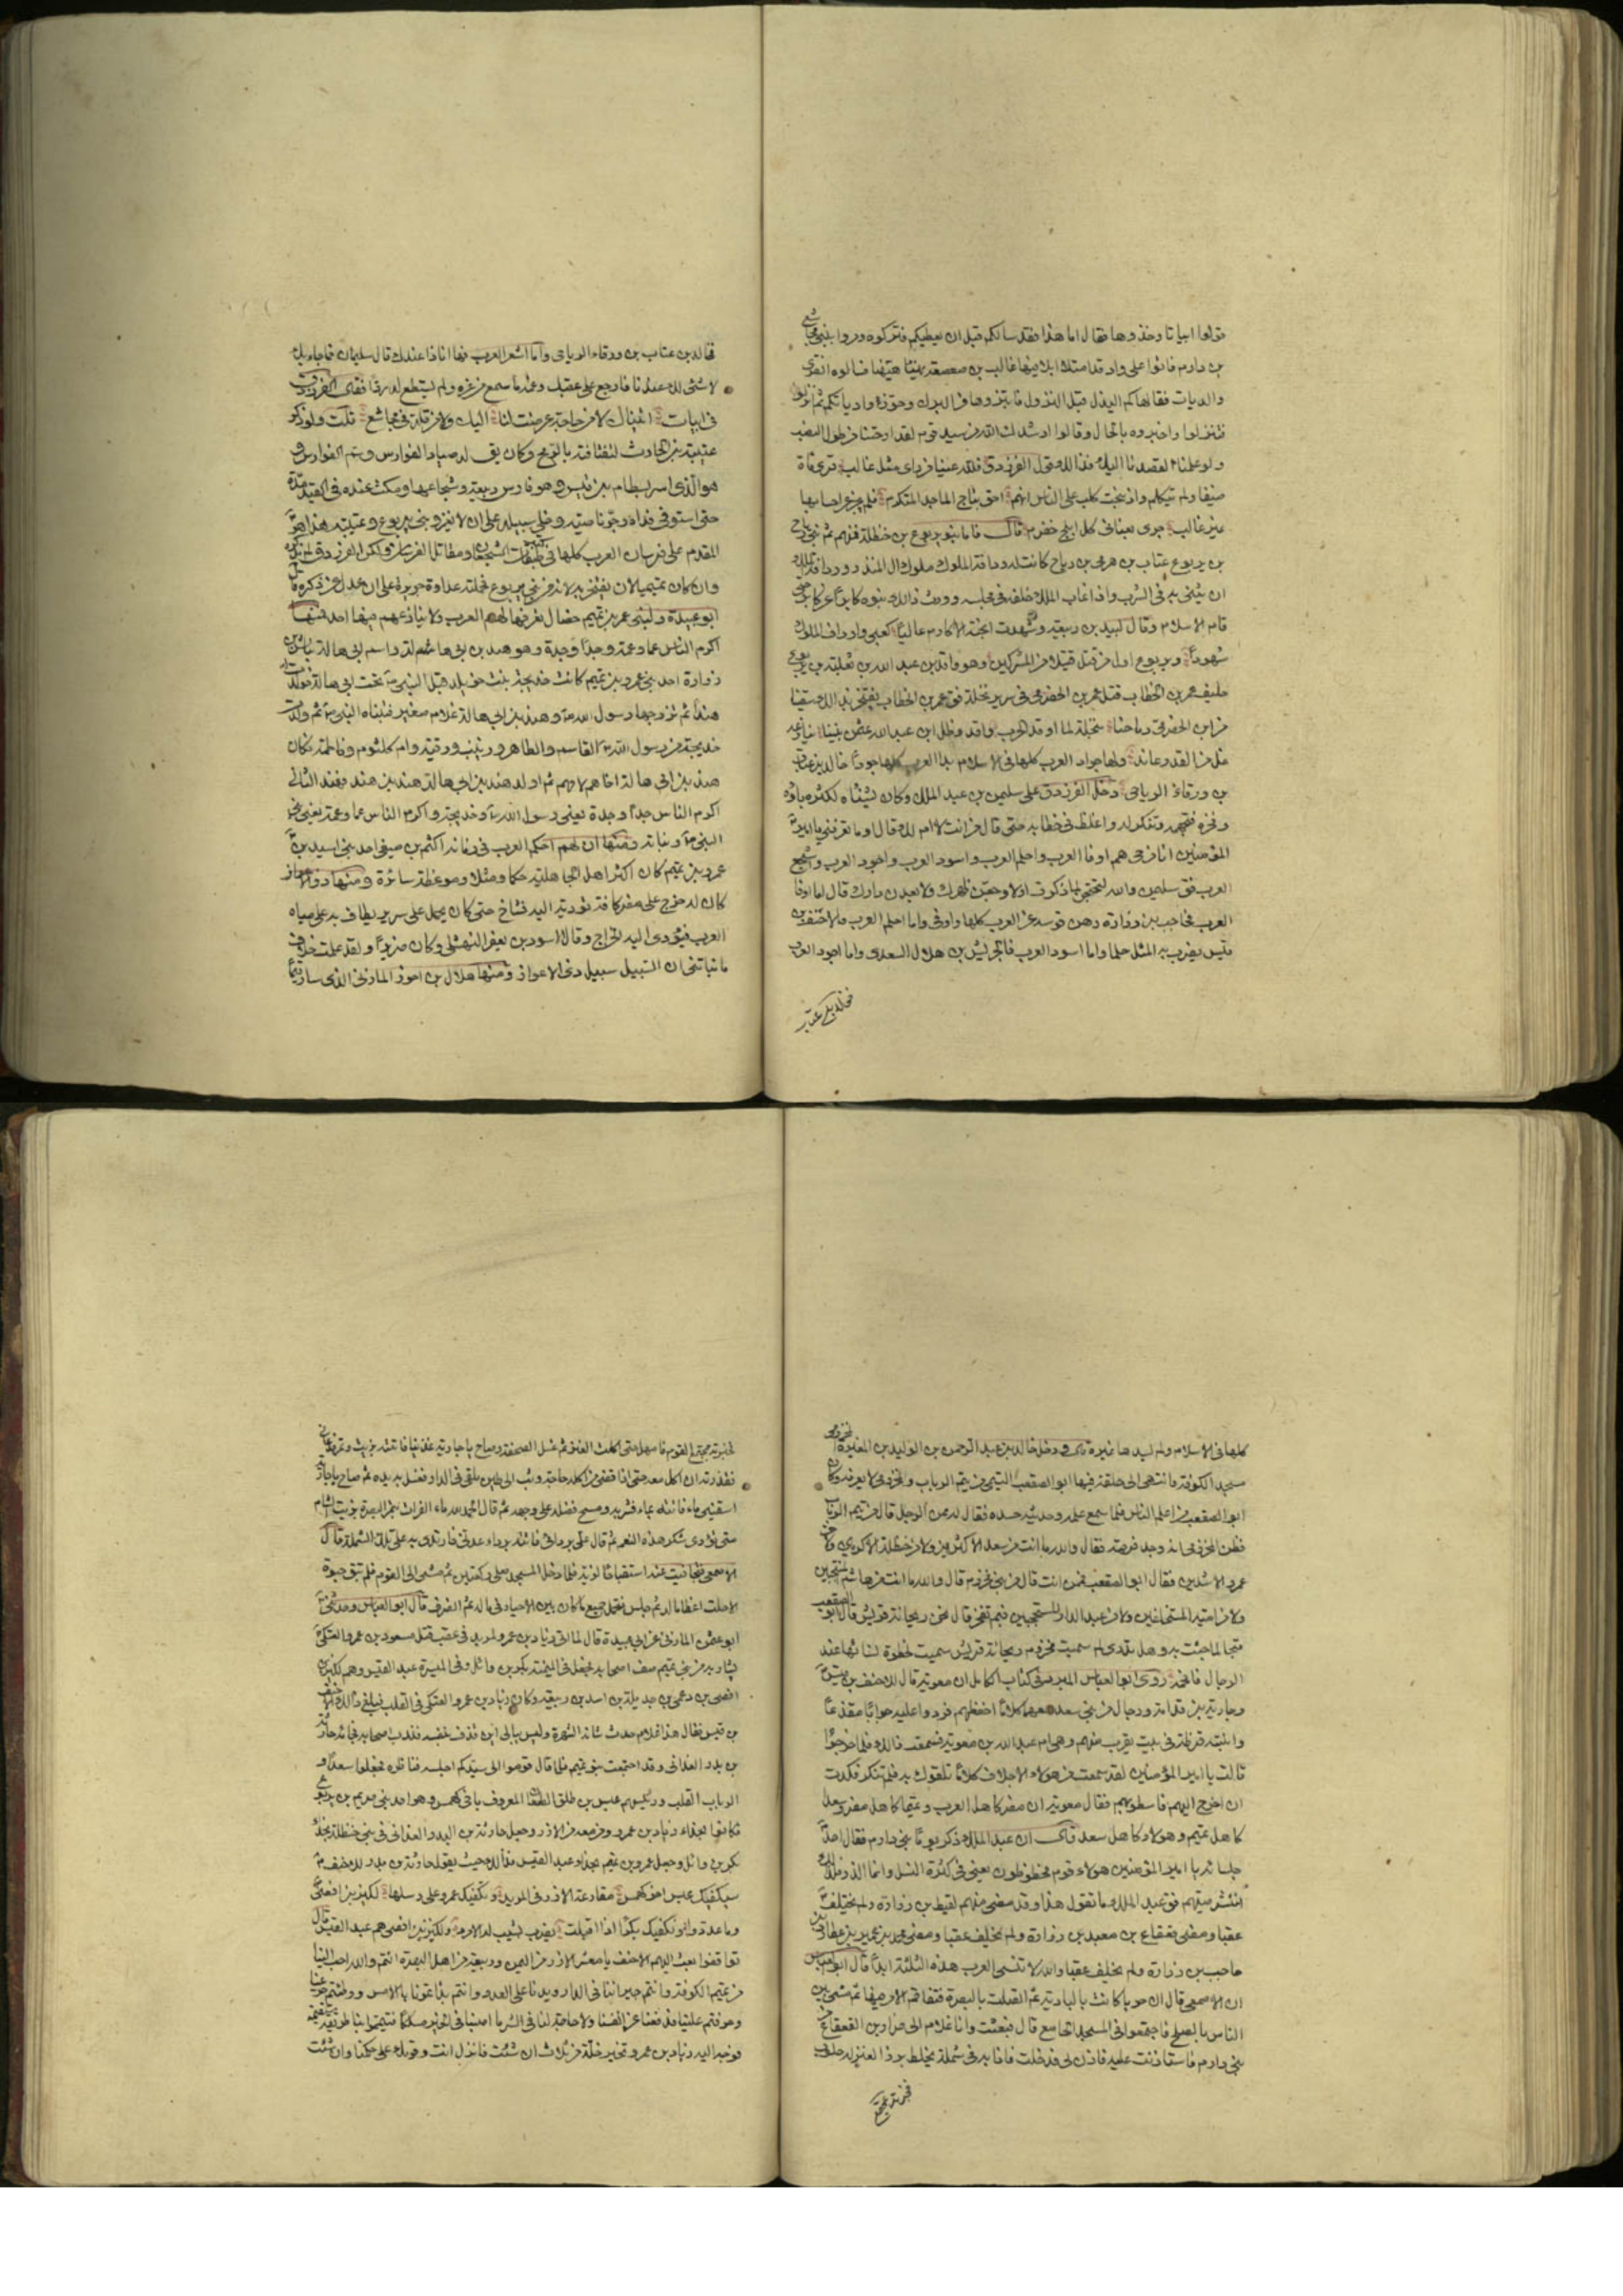 قولوا ابياتا وخذوها فقال اما هذا فقد سالكم قبل ان يعطيكم فتركوه ومروا ببني مجاشع
بن دارم فاتوا على واد قد امتلا ابلا فيها غالب بن صعصعة يهنا منها هيئها فسالوه القرى
والديات فقال هاكم البذل قبل النزول فابتزوها من البرك وحوزوا دياتكم ثم انزلوا
فتنزلوا واخبروه بالحال وقالوا ارشدك الله من سيد قوم لقد ارحتنا من طول النصب
ولو علمنا لقصدنا اليك فذالك قول الفرزدق فلله عينا من راى مثل غالب قرى مائة
ضيفا ولم يتكلم واذ نحبت كلب على الناس انهم احق بتاج الماجد المتكرم فلم يجز عن احسابها
غير غالب جرى بعناني كل ابلج خضرم قال فاما بنو يربوع بن حنظلة فمنهم ثم من بني رياح
بن يربوع عتاب بن هرمي بن رياح كانت له ردافة الملوك ملوك ال المنذر وردافة الملك
ان يثنى به في الشرب واذا غاب الملك خلفه في مجلسه وورث ذالك بنوه كابرا عن كابر حتى
قام الاسلام وقال لبيد بن ربيعة وشهدت انجية الاكارم عاليا كعبي وارداف الملوك
شهودا ويربوع اول من قتل قتيلا من المشركين وهو واقد بن عبد الله بن ثعلبة بن يربوع
حليف عمر بن الخطاب قتل عمرو بن الحضرمي في سرير نخلة فقال عمر بن الخطاب يفتخر بذالك سقينا
من ابن الحضرمي رماحنا بنخلة لما اوقد الحرب واقد وظل ابن عبد الله عثمن بيننا ينازعه
غل من القد وعاند ولها جواد العرب كلها في الاسلام بدا العرب كلها جودا خالد بن عتاب
بن ورقاء الرياحي دخل الفرزدق على سليمن بن عبد الملك وكان يشنئاه لكثرة باوه
وفخره فتجهمه وتنكر له واغلظ في خطابه حتى قال من انت لا ام لك قال اوما تعرفني يا امير
المؤمنين انا من حي هم اوفا العرب واحلم العرب واسود العرب واجود العرب واشجع
العرب فق سليمن والله لتحتجن لما ذكرت او لاوجعن ظهرك ولابعدن دارك قال اما اوفا
العرب فحاجب بن زرارة رهن قوسه عن العرب كلها واوفى واما احلم العرب فالاحنف بن
قيس يضرب به المثل حلما واما اسود العرب فالحريش بن هلال السعدي واما اجود العرب
فخالد بن عتاب
فخالد بن عتاب بن ورقاء الرياحي واما اشعر العرب فها اناذا عندك قال سليمان فما جاء بك
لا شئ لك عندنا فارجع على عقبك وغمه ما سمع من عزه ولم يستطع له ردا فقال الفرزدق
في ابيات اتيناك لا من حاجة عرضت لنا اليك ولا من قلة في مجاشع قلت ولو ذكر
عتيبة بن الحارث لنفثا فته بالرمح وكان يق له صياد الفوارس وسم الفوارس و
هو الذي اسر بسطام بن قيس وهو فارس ربيعة وشجاعها ومكث عنده في القيد مدة
حتى استوفى فداه وجز ناصيته وخلى سبيله على ان لا يغزو بني يربوع وعتيبة هذا هو
المقدم على فرسان العرب كلها في كتاب طبقات الشجعان ومقاتل الفرسان ولكن الفرزدق لم يذكره
وان كان تميميا لان يفتخر به لانه من بني يربوع فحملته عداوة جرير على ان عدل عن ذكره قال
ابو عبيدة ولبني عمرو بن تميم خصال تعرفها لهم العرب ولا ينازعهم فيها احد فمنها
اكرم الناس عما وعمة وجدا وجدة وهو هند بن ابي هالة واسم ابي هالة نباش بن
زرارة احد بني عمرو بن تميم كانت خديجة بنت خويلد قبل النبي ص تحت ابي هالة فولدت
هندا ثم تزوجها رسول الله ص وهند بن ابي هالة غلام صغير فتبناه النبي ص ثم ولدت
خديجة من رسول الله ص القاسم والطاهر وزينب ورقية وام كلثوم وفاطمة فكان
هند بن ابي هالة اخاهم لامهم ثم اولد هند بن ابي هالة هند بن هند فهند الثاني
اكرم الناس جدا وجدة يعني رسول الله ص وخديجة واكرم الناس عما وعمة يعني بني
النبي ص وبناته ومنها ان لهم احكم العرب في زمانه اكثم بن صيفي احد بني اسيد بن
عمرو بن تميم كان اكثر اهل الجاهلية حكما ومثلا وموعظة سائرة ومنها ذو الاعواز
كان له خرج على مضر كافة تؤديه اليه فشاخ حتى كان يحمل على سرير يطاف به على مياه
العرب فيؤدى اليه الخراج وقال الاسود بن يعفر النهشلي وكان ضريرا ولقد علمت خلاف
ما نباتني ان السبيل سبيل ذي الاعواز ومنها هلال بن احوز المازني الذي ساد تميما
كلها في الاسلام ولم يسدها غيره قال ودخل خالد بن عبد الرحمن بن الوليد بن المغيرة المخزومي
مسجد الكوفة فانتهى الى حلقة فيها ابو الصقعب التيمي من تيم الرباب والمخزومي لا يعرفه وكان
ابو الصقعب من اعلم الناس فلما سمع علمه وحديثه حسده فقال له ممن الرجل قال من تيم الرباب
فظن المخزومي انه وجد فرصة فقال والله ما انت من سعد الاكثرين ولا من حنظلة الاكرمين ولا من
عمرو الاشدين فقال ابو الصقعب فممن انت قال من بني مخزوم قال والله ما انت من هاشم المنتجبين
ولا من امية المستخلفين ولا من عبد الدار المستحجبين فبم تفخر قال نحن ريحانة قريش قال ابو الصقعب
قبحا لما جئت به وهل تدري لم سميت مخزوم ريحانة قريش سميت لحظوة نسائها عند
الرجال فافحمه روى ابو العباس المبرد في كتاب الكامل ان معوية قال للاحنف بن قيس
وجارية بن قدامة ورجال من بني سعد معهما كلاما احفظهم فردوا عليه جوابا مقذعا
وابنة قرظة في بيت يقرب منهم وهي ام عبد الله بن معوية فسمعت ذالك فلما خرجوا
قالت يا امير المؤمنين لقد سمعت من هولاء الاجلاف كلاما تلقوك به فلم تنكر فكدت
ان اخرج اليهم فاسطو بهم فقال معوية ان مضر كاهل العرب وتميما كاهل مضر وسعدا
كاهل تميم وهولاء كاهل سعد قال ان عبد الملك ذكر يوما بني دارم فقال احد
جلسائه يا امير المؤمنين هولاء قوم محظوظون يعني في كثرة النسل وانما الذرء فلذلك
انتشر صيتهم فق عبد الملك ما تقول هذا وقد مضى منهم لقيط بن زرارة ولم يخلف
عقبا ومضى قعقاع بن معبد بن زرارة ولم يخلف عقبا ومضى محمد بن عمير بن عطارد بن
حاجب بن زرارة ولم يخلف عقبا والله لا تنسى العرب هذه الثلثة ابدا قال ابو العباس
ان الاصمعي قال ان حربا كانت بالبادية ثم اتصلت بالبصرة فتفاقم الامر فيها ثم مشى بين
الناس بالصلح فاجتمعوا في المسجد الجامع قال فبعثت وانا غلام الى ضرار بن القعقاع من
بني دارم فاستاذنت عليه فاذن لي فدخلت فاذا به في شملة يخلط بزرا لعنز له حلوب
فخبرته بمجتمع
فخبرته بمجتمع القوم فامهل حتى اكلت العنز ثم غسل الصحفة وصاح يا جارية غدينا فاتته بزيت وتمر فدعاني
فقذرته ان اكل معه حتى اذا قضى من اكله حاجة وثب الى طين ملقى في الدار فغسل به يده ثم صاح يا جارية
اسقيني ماء فاتته بماء فشربه ومسح فضله على وجهه ثم قال الحمد لله ماء الفرات بتمر البصرة بزيت الشام
متى نؤدي شكر هذه النعم ثم قال علي بردائي فاتته برداء عدني فارتدى به على تلك الشملة قال
الاصمعي فتجافيت عنه استقباحا لزيه فلما دخل المسجد صلى ركعتين ثم مشى الى القوم فلم تبق حبوة
الا حلت اعظاما له ثم جلس فتحمل جميع ما كان بين الاحياء في ماله ثم انصرف قال ابو العباس وحدثني
ابو عثمن المازني عن ابي عبيدة قال لما اتى زياد بن عمرو المربد في عقب قتل مسعود بن عمرو العتكي
يثار به من بني تميم صف اصحابه فجعل في الميمنة بكر بن وائل وفي الميسرة عبد القيس وهم لكيز بن
افصى بن دعمي بن جديلة بن اسد بن ربيعة وكان زياد بن عمرو العتكي في القلب فبلغ ذالك الاحنف
بن قيس فقال هذا غلام حدث شانه الشهرة وليس يبالي اين قذف بنفسه فندب اصحابه فجائه حارثة
بن بدر الغداني وقد اجتمعت بنو تميم فلما قال قوموا الى سيدكم اجلسه فناظره فجعلوا سعدا و
الرباب القلب ورئيسهم عبس بن طلق الطعان المعروف باخي كهمس وهو احد بني صريم بن يربوع
فكانوا بحذاء زياد بن عمرو ومن معه من الازد وجعل حارثة بن بدر الغداني في بني حنظلة بحذاء
بكر بن وائل وجعل عمرو بن تميم بحذاء عبد القيس فذالك حيث يقول حارثة بن بدر للاحنف
سيكفيك عبس اخو كهمس مقارعة الازد في المربد وتكفيك عمرو على رسلها لكيز بن افصى
وما عددوا وتكفيك بكرا اذا اقبلت بضرب يشيب له الامرد ولكيز بن افصى هم عبد القيس قال
تواقفوا بعث اليهم الاحنف يا معشر الازد من اليمن وربيعة من اهل البصرة انتم والله احب الينا
من تميم الكوفة وانتم جيراننا في الدار ويدنا على العدو وانتم بداتمونا بالامس ووطئتم حريمنا
وحرقتم علينا فدفعنا عن انفسنا ولا حاجة لنا في الشر ما اصبنا في الخير مسلكا فتيمموا بنا طريقة مستقيمة
فوجه اليه زياد بن عمرو تخير خلة من ثلاث ان شئت فانزل انت وقومك على حكمنا وان شئت